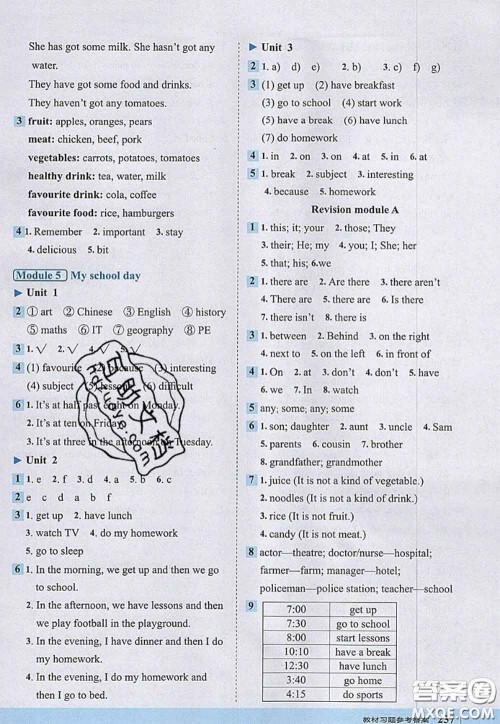 She has got some milk. She hasn't got any
water.
They have got some food and drinks.
They haven't got any tomatoes.
3 fruit: apples, oranges, pears
meat: chicken, beef, pork
vegetables: carrots, potatoes, tomatoes
healthy drink: tea, water, milk
favourite drink: cola, coffee
favourite food: rice, hamburgers
4 1. Remember 2. important 3. stay
4. delicious 5. bit
Module 5 My school day
▶ Unit 1
2 ① art ② Chinese ③ English ④ history
⑤ maths ⑥ IT ⑦ geography ⑧ PE
3 1. √ 2. √ 4. √ 5. √
4 (1) favourite (2) because (3) interesting
(4) subject (5) lessons (6) difficult
6 1. It's at half past eight on Monday.
2. It's at ten on Friday.
3. It's at three in the afternoon on Tuesday.
▶ Unit 2
1 1. e 2. f 3. d 4. a 5. b 6. c
2 e c d a b f
3 1. get up 2. have lunch
3. watch TV 4. do my homework
5. go to sleep
6 1. In the morning, we get up and then we go
to school.
2. In the afternoon, we have lunch and then
we play football in the playground.
3. In the evening, I have dinner and then I do
my homework.
4. In the evening, I do my homework and
then I go to bed.
▶ Unit 3
2 1. a) d) e) 2. b) 3. c) f) g)
3 (1) get up (2) have breakfast
(3) go to school (4) start work
(5) have lunch (6) have lunch
(7) do homework
4 1. in 2. on 3. on 4. at 5. in 6. at
5 1. break 2. subject 3. interesting
4. because 5. homework
Revision module A
1 1. this; it; your 2. those; They
3. their; He; my 4. I; She; her
5. that; his; my
2 1. there are 2. Are there 3. there aren't
4. There are 5. There is 6. Is there
7. there isn't
3 1. between 2. Behind 3. on the right
4. next to 5. on the left 6. in front of
4 1. Has 2. On 3. don't 4. do
5 any; some; any; some
6 1. son; daughter 2. aunt 3. uncle 4. Sam
5. parents 6. cousin 7. brother
8. grandfather; grandmother
7 1. juice (It is not a kind of vegetable.)
2. noodles (It is not a kind of drink.)
3. rice (It is not fruit.)
4. candy (It is not meat.)
8 actor—theatre; doctor/nurse—hospital;
farmer—farm; manager—hotel;
policeman—police station; teacher—school
9
7:00 get up
7:30 go to school
8:00 start lessons
10:10 have a break
12:30 have lunch
3:40 go home
4:15 do sports
教材习题参考答案 257
答案圈
MXQE.COM